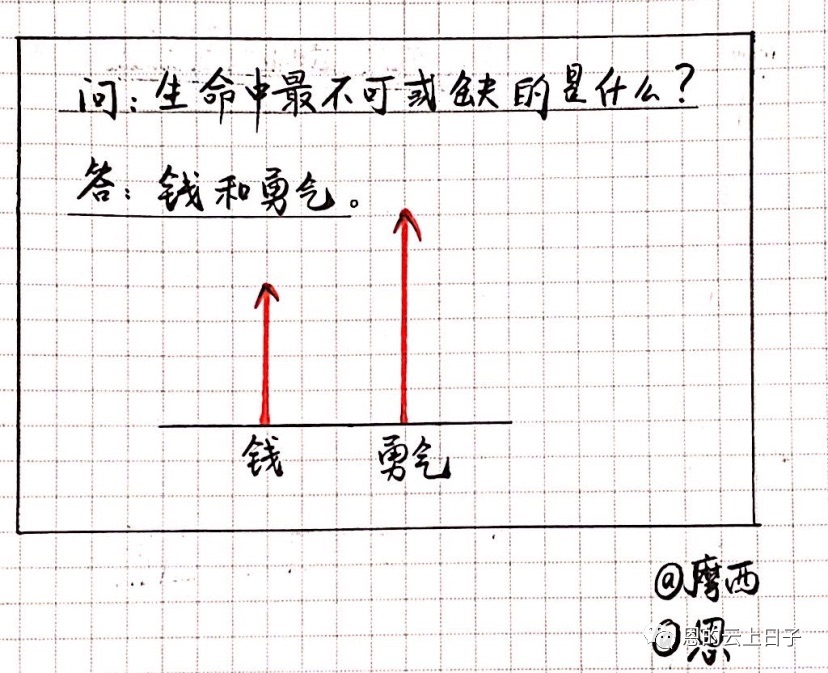 问：生命中最不可或缺的是什么？
答：钱和勇气。
钱 勇气
@摩西
@恩
恩的云上日子